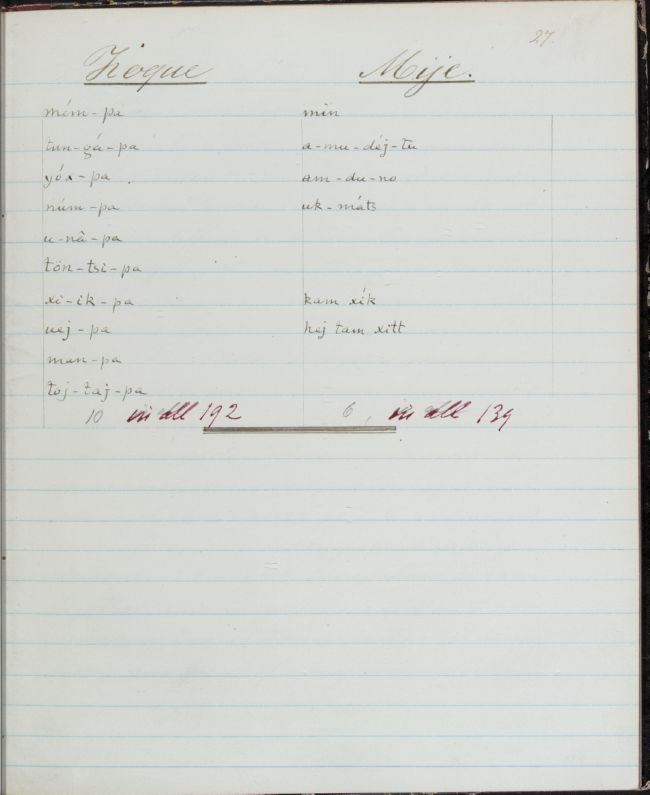 27.
Zoque Mije.
mém-pa min
tun-gá-pa a-mu-déj-tu
yóx-pa am-du-no
núm-pa uk-máts
u-nâ-pa
tön-tsi-pa
xi-ik-pa kam xík
uej-pa hej tam xitt
man-pa
toj-taj-pa
10 in all 192 6, in all 139